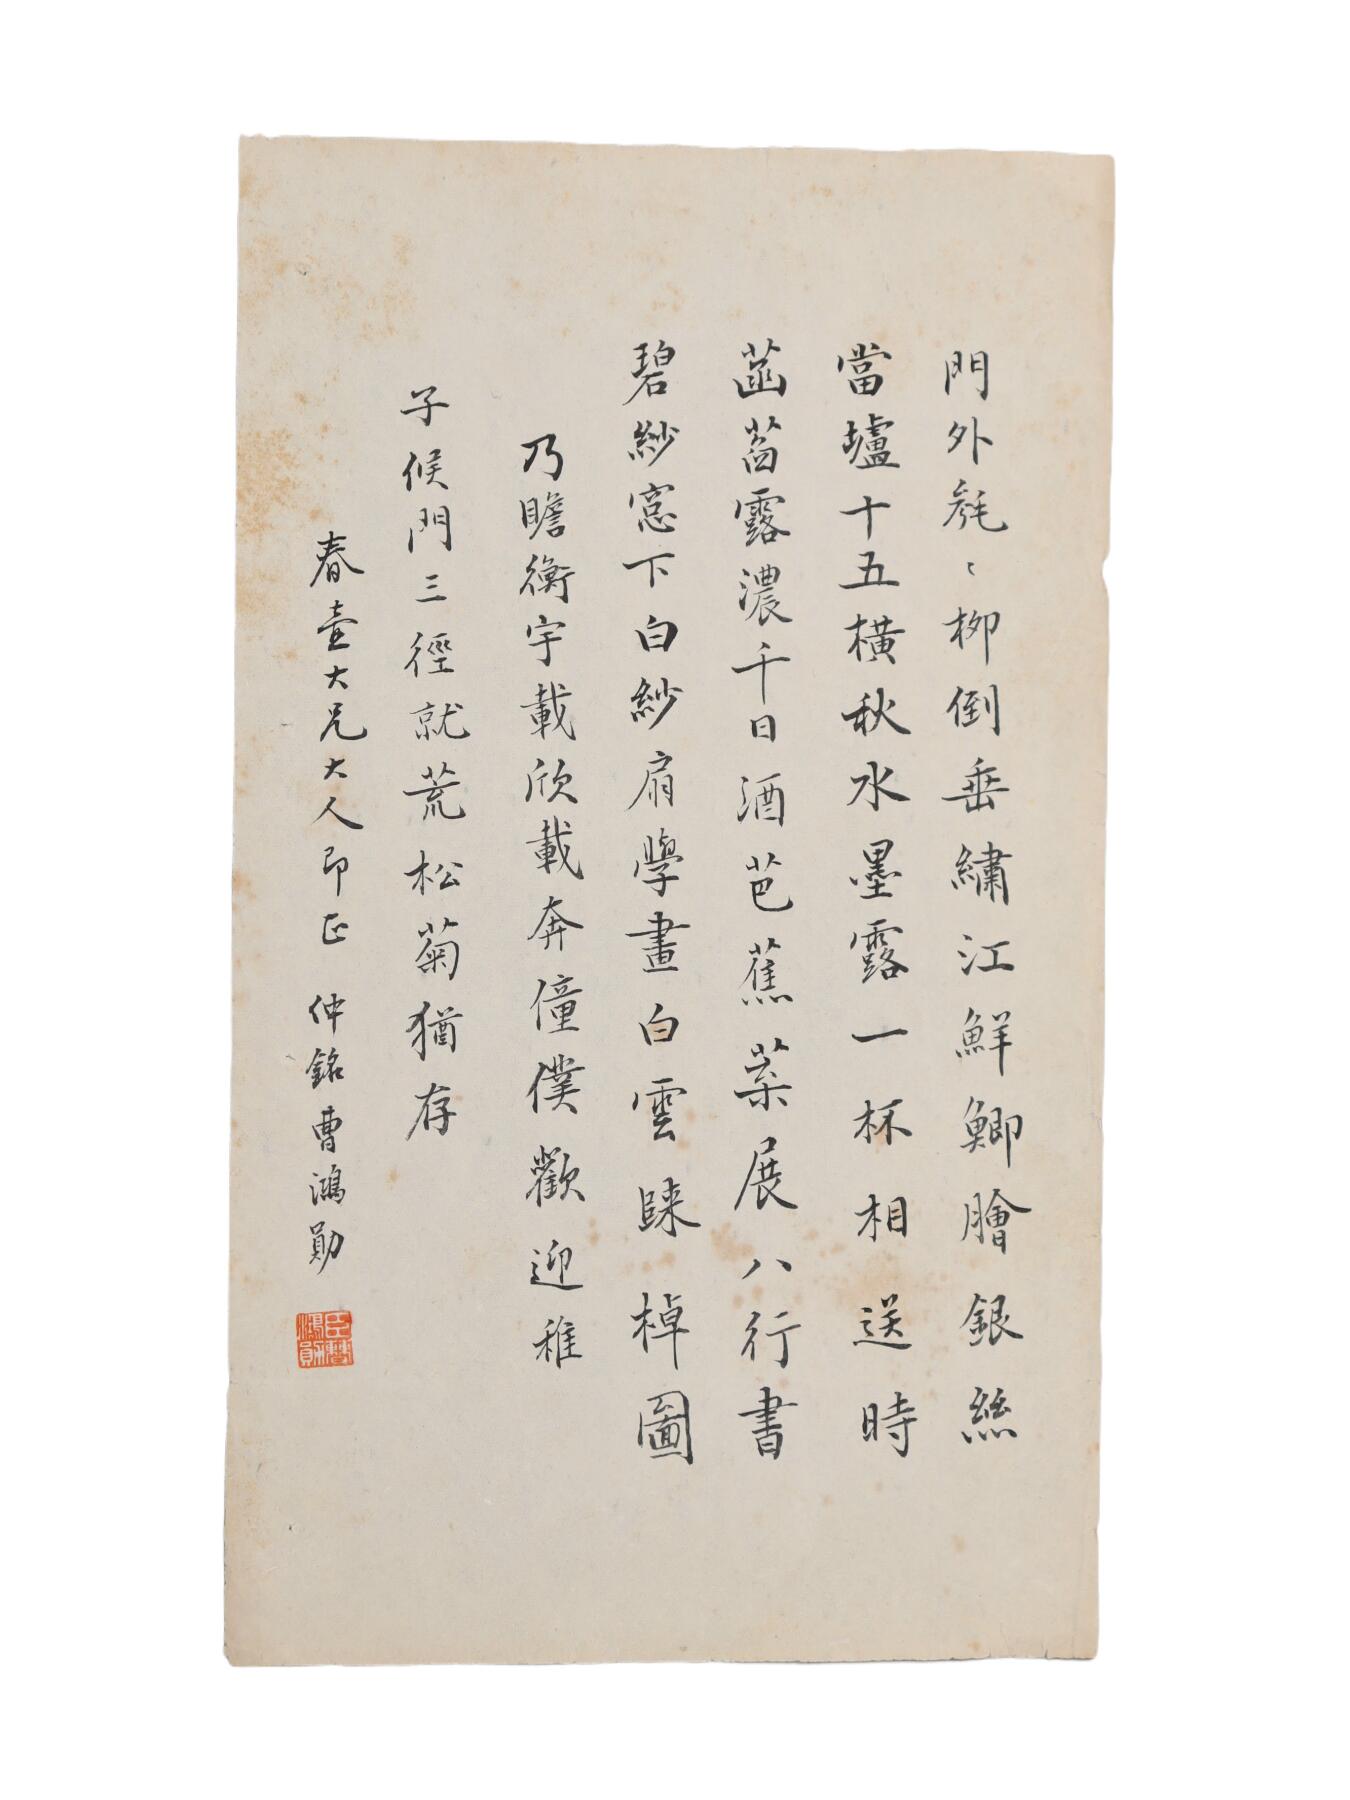 門外毿〻柳倒垂繡江鮮鯽膾銀絲
當壚十五橫秋水墨露一杯相送時
菡萏露濃千日酒芭蕉葉展八行書
碧紗窓下白紗扇學畫白雲歸棹圖
乃瞻衡宇載欣載奔僮僕歡迎稚
子候門三徑就荒松菊猶存
春壺大兄大人即正 仲銘曹鴻勛
臣曹鴻勛